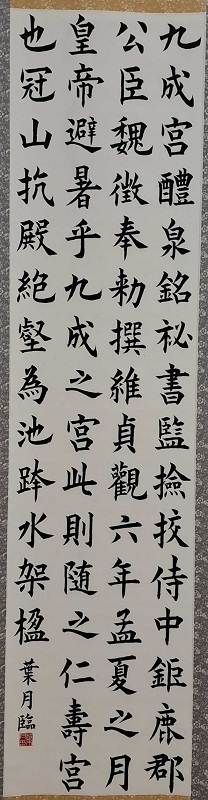 九成宮醴泉銘祕書監撿挍侍中鉅鹿郡
公臣魏徴奉勅撰維貞觀六年孟夏之月
皇帝避暑乎九成之宮此則随之仁壽宮
也冠山抗殿絶壑為池跨水架楹
葉月臨